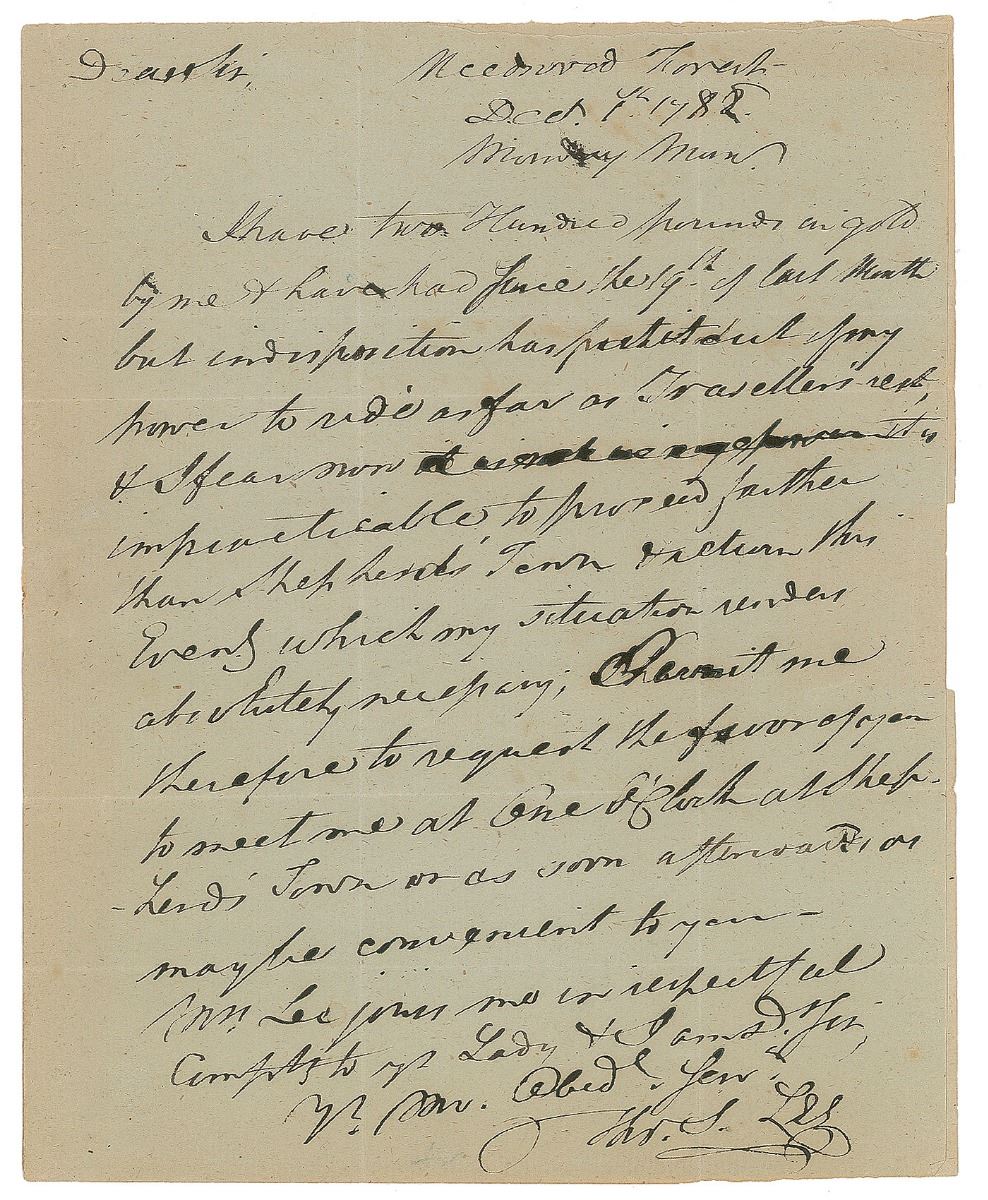 Dear Sir, Needwood Forest
Decr. 1st. 1782.
Monday Morng
I have two Hundred pounds in gold
by me & have had since the 19th. of last Month
but indisposition has put it out of my
power to ride as far as Traveller's rest,
& I fear now it is
impracticable to proceed farther
than Shepherd's Town & return this
Eveng which my situation renders
absolutely necessary; Permit me
therefore to request the favor of you
to meet me at One O'Clock at Shep-
-herd's Town or as soon afterwards as
may be convenient to you -
Mrs. Lee joins me in respectful
Complts. to yr Lady & I am Dr. Sir,
Yr. Mo. Obedt. Servt.
Tho. S. Lee